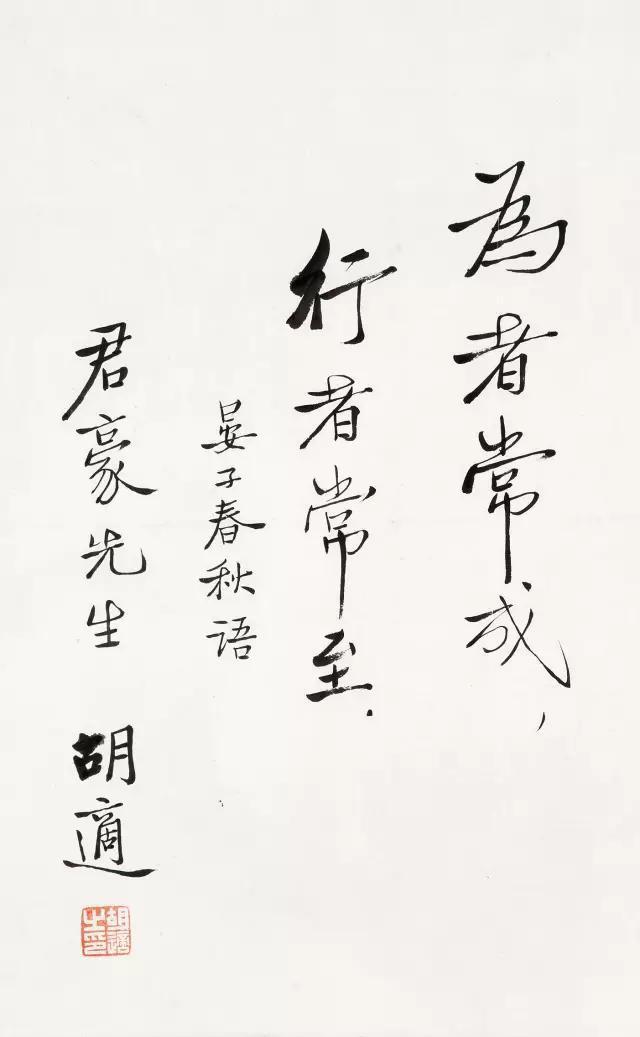 為者常成，
行者常至．
晏子春秋語
君豪先生
胡適
胡適之印